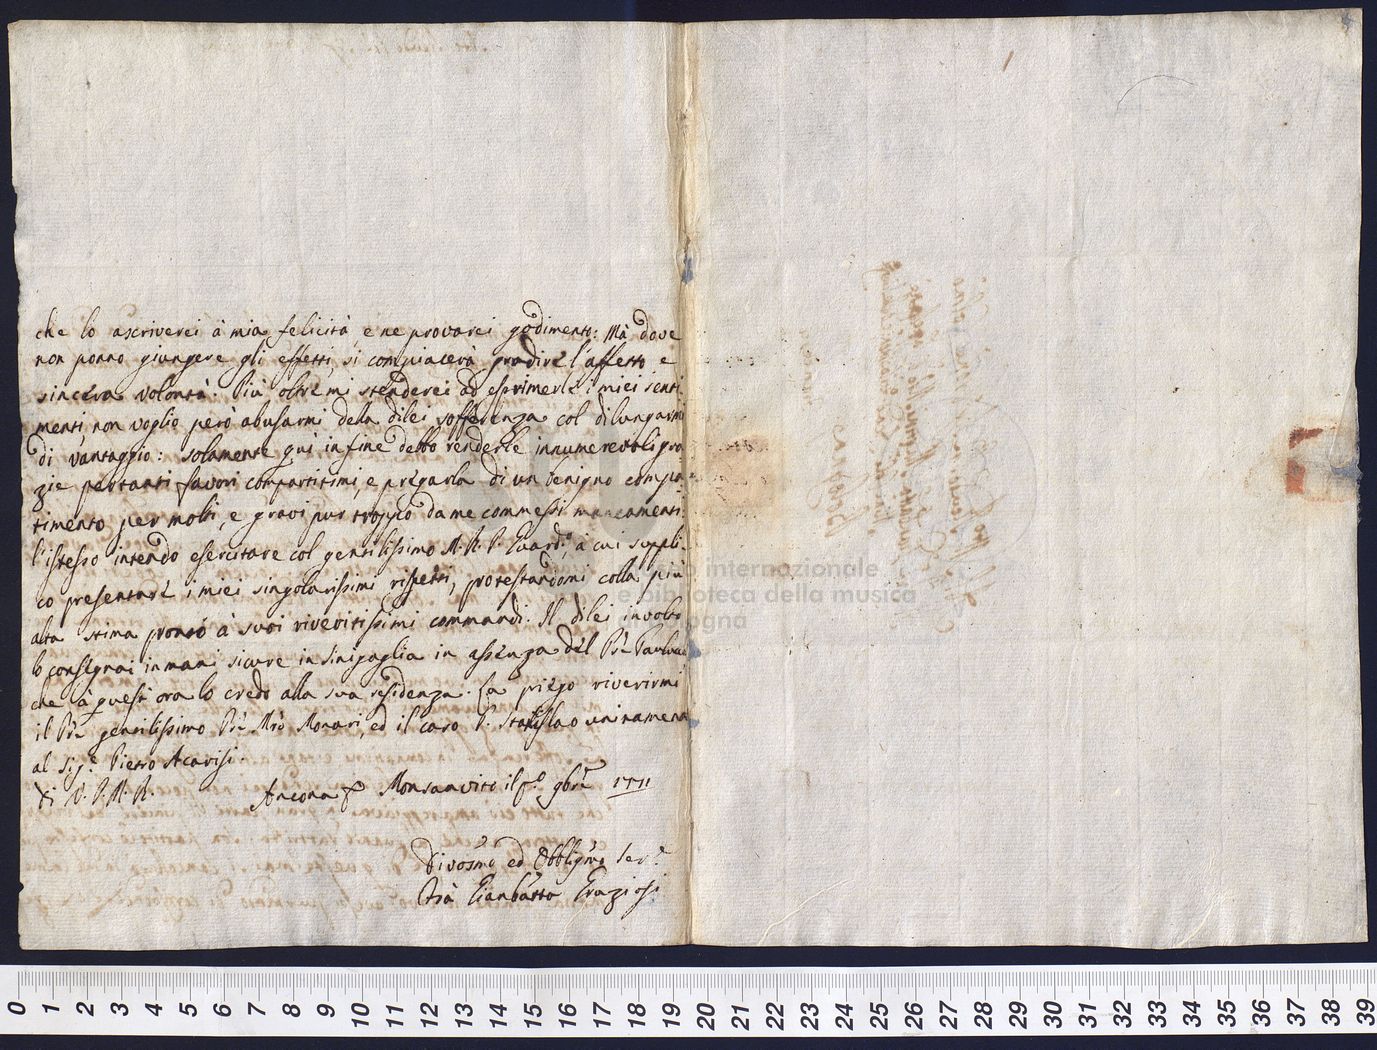 che lo ascriverei à mia felicità, e ne provarei godimento: Mà dove
non ponno giungere gli effetti, si compiacerà gradire l'affetto, e
sincera volontà. Più oltre mi stenderei ad esprimerle i miei senti
menti, non voglio però abusarmi della dilei sofferenza col dilungarmi
di vantaggio: solamente quì in fine debbo renderle innumerevoli gra
zie per tanti favori compartitimi, e pregarla di un benigno compa-
timento per molti, e gravi pur troppo da me commessi mancamenti.
l'istesso intendo esercitare col gentilissimo M. R. P. Guard.º, à cui suppli-
co presentare i miei singolarissimi rispetti, protestandomi colla più
alta stima pronto à suoi riveritissimi commandi. Il dilei involto
lo consegnai in mani sicure in Sinigaglia in assenza del Pre
che à quest'ora lo credo alla sua residenza. La priego riverirmi
il Pre gentilissimo Pre Mro Monari, ed il caro P. Stanislao unitamente
al Sig.e Pietro Acarisi.
Di V. P. M. R.
Ancona p Monsanvito il p.º 9bre 1771
Divosmo ed Obbligmo Ser.e
Frà Gianbatta Graziosi
museo internazionale
e biblioteca della musica
di bologna
0 1 2 3 4 5 6 7 8 9 10 11 12 13 14 15 16 17 18 19 20 21 22 23 24 25 26 27 28 29 30 31 32 33 34 35 36 37 38 39